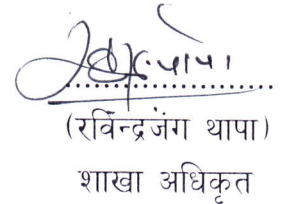 (रविन्द्रजंग थापा)
शाखा अधिकृत